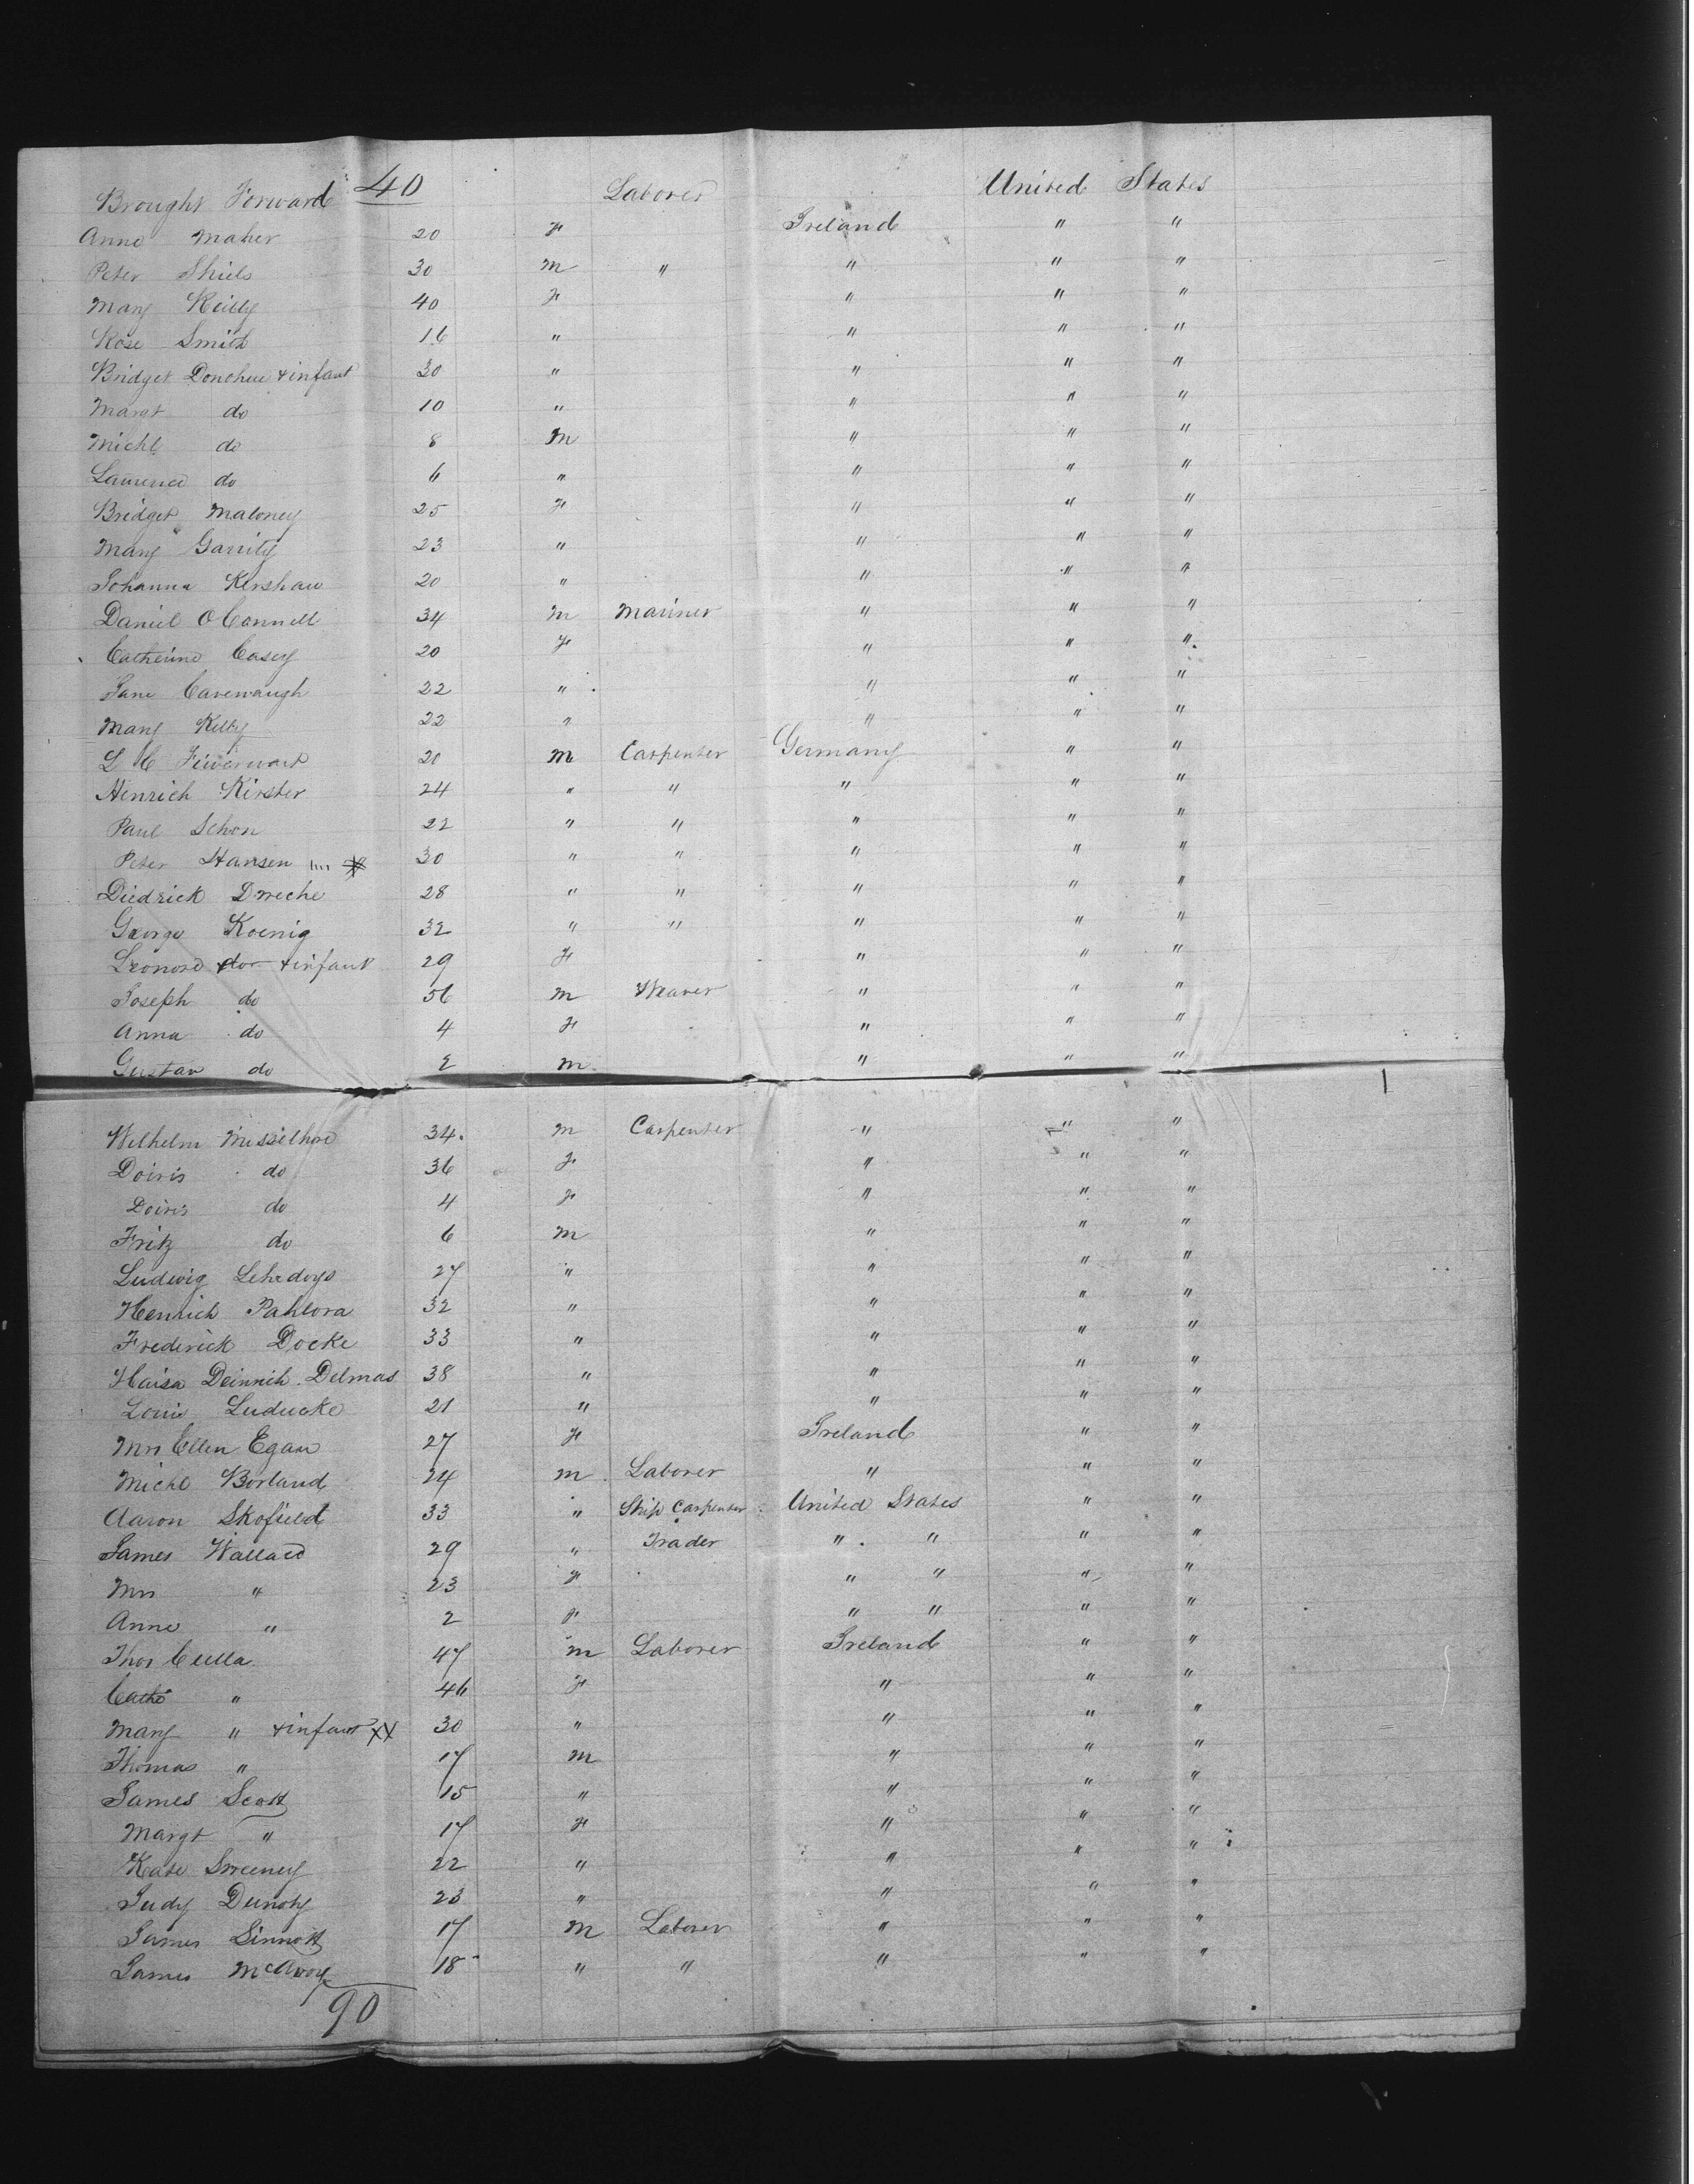 Brought Forward 40 Laborer United States
Anne Maher 20 F Ireland " "
Peter Shiels 30 m " " " "
Mary Reilly 40 F " " "
Rose Smith 16 " " " "
Bridget Donohue + infant 30 " " " "
Margt do 10 " " " "
Michl do 8 m " " "
Laurence do 6 " " " "
Bridget Maloney 25 F " " "
Mary Garrity 23 " " " "
Johanna Kershaw 20 " " " "
Daniel O Connell 34 m Mariner " " "
Catherine Casey 20 F " " "
Jane Cavenaugh 22 " " " "
Mary Kelly 22 " " " "
L C 20 m Carpenter Germany " "
Henrich Kirster 24 " " " " "
Paul Schon 22 " " " " "
Peter Hansen 30 " " " " "
Diedrick 28 " " " " "
George Koenig 32 " " " " "
Leonore do + infant 29 F " " "
Joseph do 56 m Weaver " " "
Anna do 4 F " " "
Gustav do 2 m " " "
Wilhelm 34 m Carpenter " " "
Doiris do 36 F " " "
Doiris do 4 F " " "
Fritz do 6 m " " "
Ludwig 27 " " " "
Henrich Pahlora 32 " " " "
Frederick Docke 33 " " " "
Delmas 38 " " " "
Louis Luducke 21 " " " "
Mrs Ellen Egan 27 F Ireland " "
Michl Borland 24 m Laborer " " "
Aaron Skofield 33 " Ship Carpenter United States " "
James Wallace 29 " Trader " " " "
Mrs " 23 F " " " "
Anne " 2 F " " " "
Thos Culla 47 m Laborer Ireland " "
Cathe " 46 F " " "
Mary " + infant XX 30 " " " "
Thomas " 17 m " " "
James Scott 15 " " " "
Margt " 17 F " " "
Kate Sweeney 22 " " " "
Judy 23 " " " "
James Sinnott 17 m Laborer " " "
James McAvoy 18 " " " " "
90